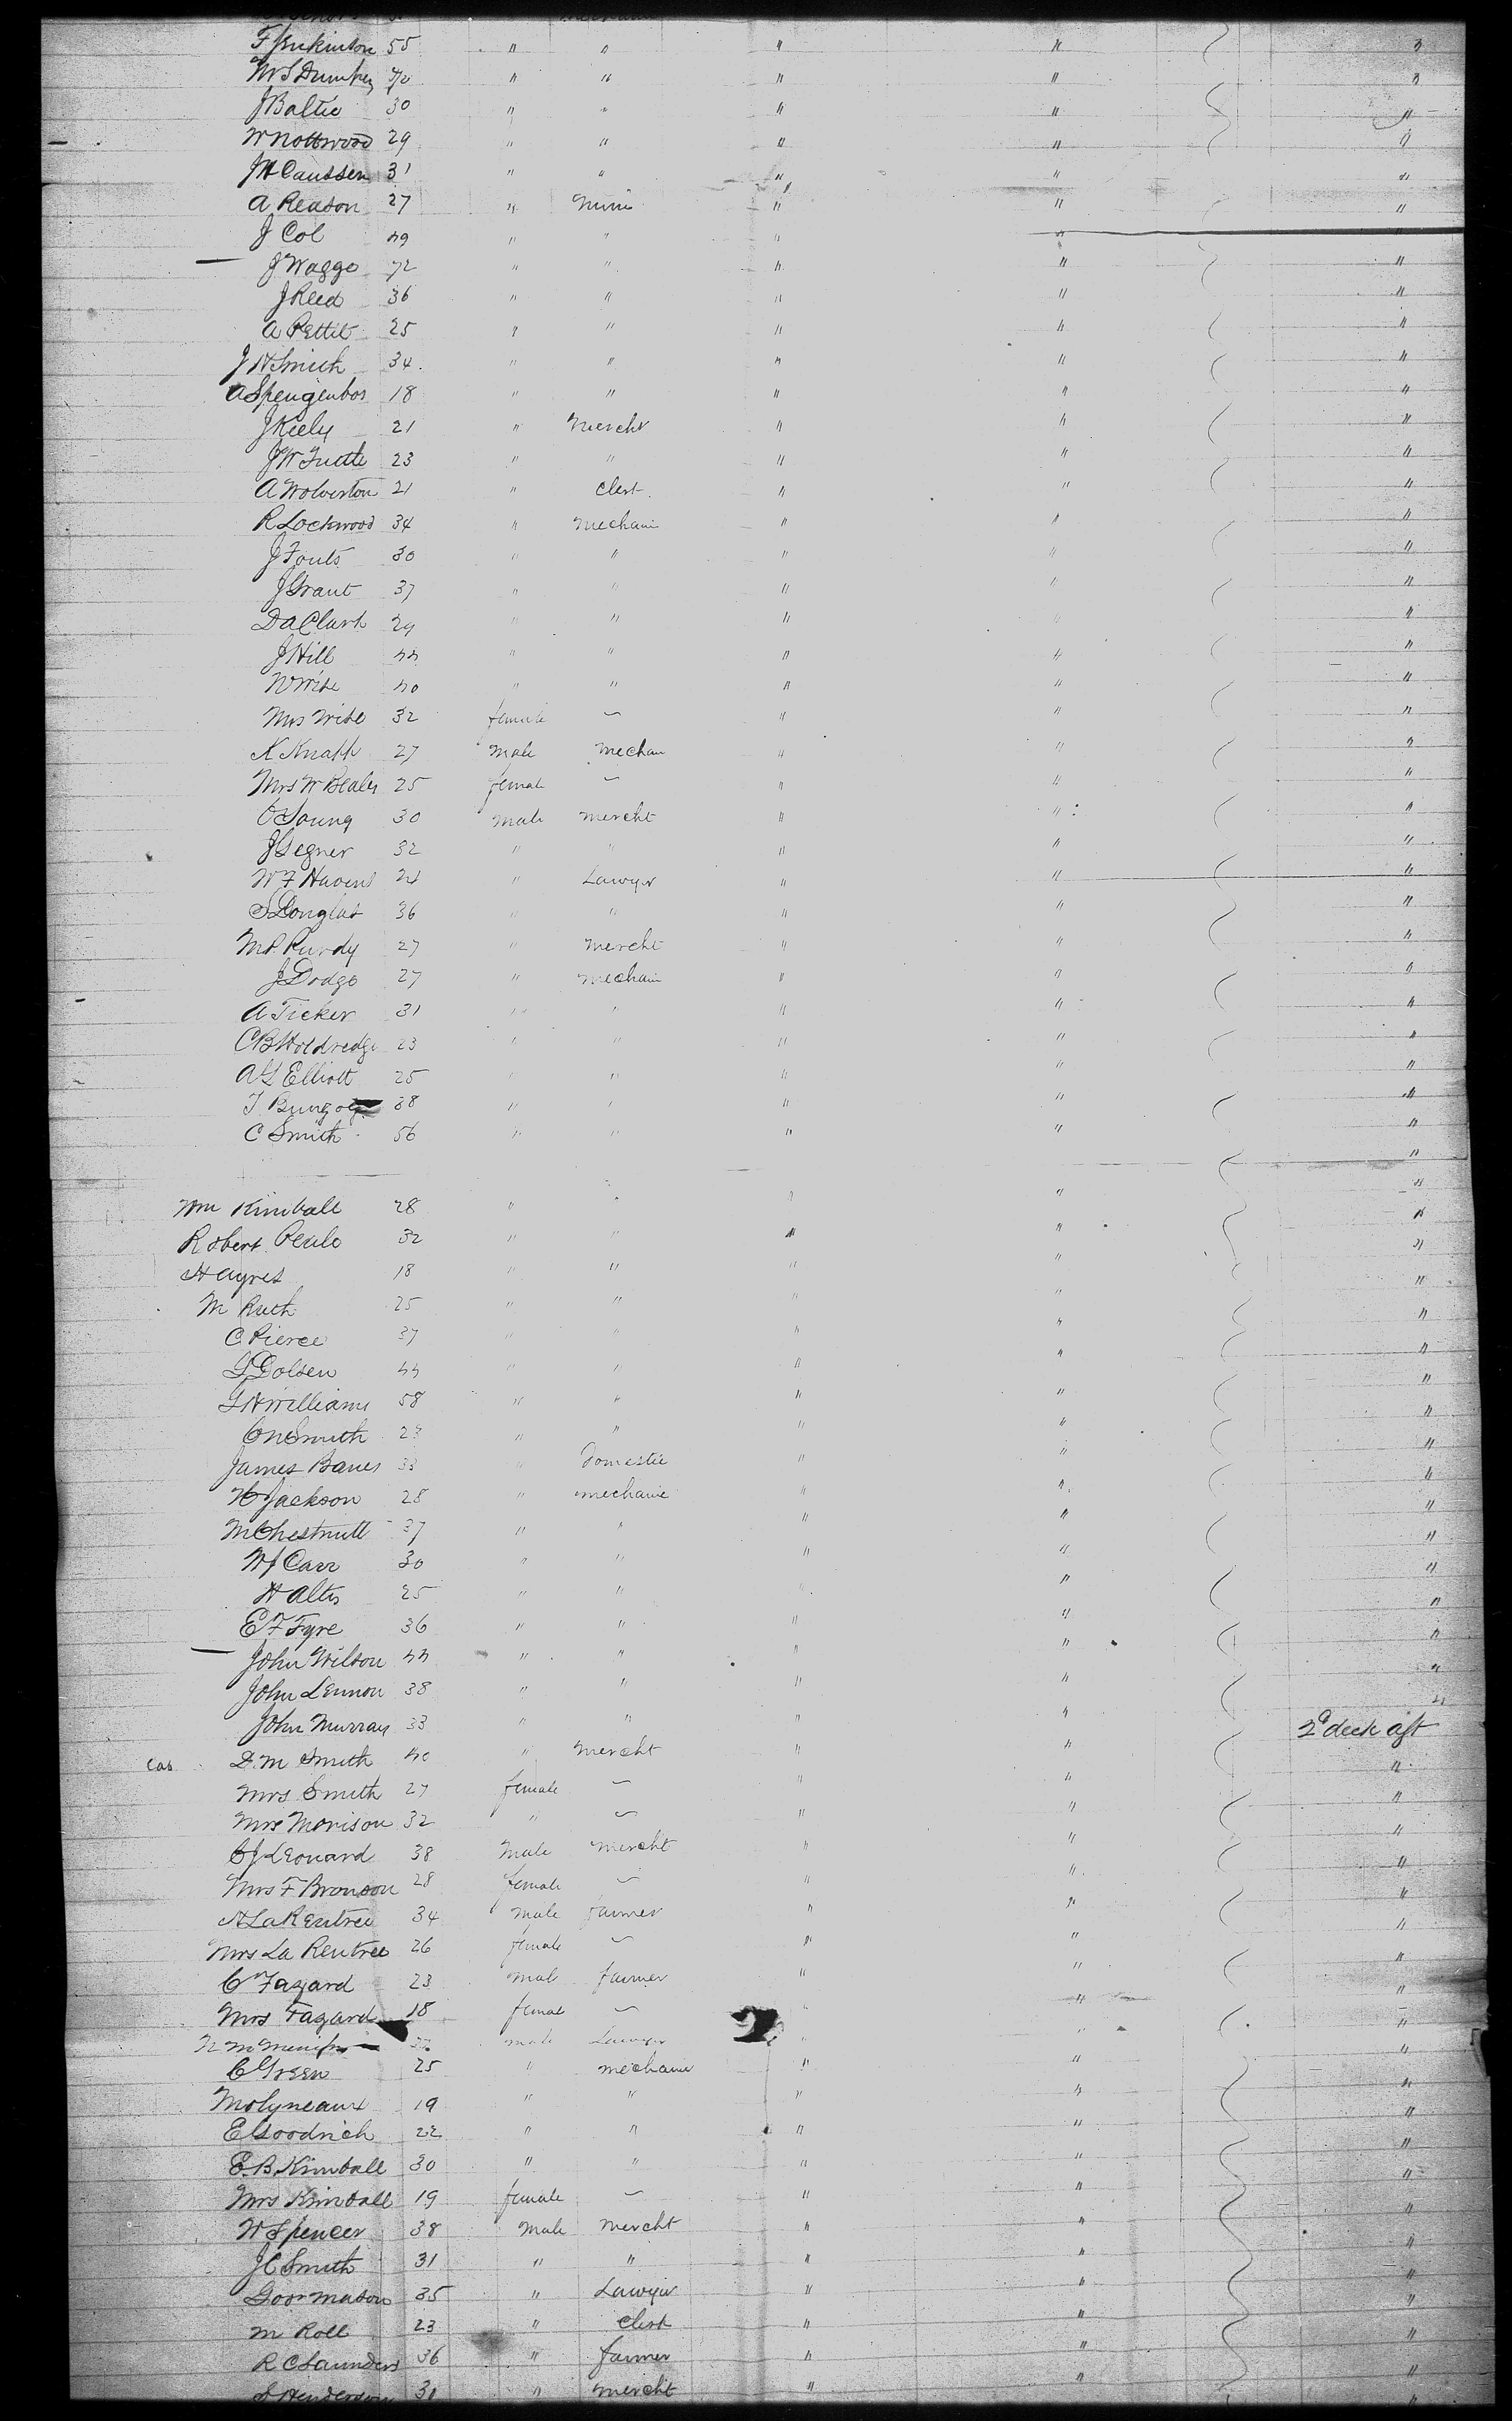 F Jenkinson 55 " " " " "
30 " " " " "
W Nottwood 29 " " " " "
J H Caussen 31 " " " " "
A Reason 27 " " " "
J Col 49 " " " " "
J Waggo 42 " " " " "
J Reed 36 " " " " "
A Pettit 25 " " " " "
J H Smith 34 " " " " "
18 " " " " "
J Kiely 21 " Mercht " " "
J W Tuttle 23 " " " " "
A Wolverton 21 " Clerk " " "
R Lockwood 34 " Mechani " " "
J Fouts 30 " " " " "
J Grant 37 " " " " "
D A Clark 29 " " " " "
J Hill 44 " " " " "
W Wise 40 " " " " "
Mrs Wise 32 female ~ " " "
K Knapp 27 Male Mechan " " "
Mrs W Bealey 25 female ~ " " "
C Young 30 male mercht " " "
J Segner 32 " " " " "
W F Havens 24 " Lawyer " " "
S Douglas 36 " " " " "
M P Purdy 27 " mercht " " "
J Dodge 27 " mechani " " "
A Ticker 31 " " " " "
C B Holdredge 23 " " " " "
A G Elliott 25 " " " " "
38 " " " " "
C Smith 56 " " " " "
Wm Kimball 28 " " " " "
Robert Peale 32 " " " " "
H Ayres 18 " " " " "
M Ruth 25 " " " " "
C Pierce 37 " " " " "
G Dolsen 44 " " " " "
G H Williams 58 " " " " "
C M Smith 23 " " " " "
James Banes 33 " Domestic " " "
H Jackson 28 " mechanic " " "
M Chestnutt 37 " " " " "
W J Carr 30 " " " " "
H Alter 25 " " " " "
E F Fyre 36 " " " " "
John Wilson 44 " " " " "
John Lennon 38 " " " " "
John Murray 33 " " " " 2d deck aft
Cab D. M Smith 40 " mercht " " "
Mrs Smith 27 female ~ " " "
Mrs Morison 32 " ~ " " "
C J Leonard 38 Male mercht " " "
Mrs F Bronson 28 female ~ " " "
A La Rentree 34 male farmer " " "
Mrs La Rentree 26 female ~ " " "
C Fazard 23 male farmer " " "
Mrs Fazard 18 female ~ " " "
male Lawyer " " "
C Green 25 " mechanic " " "
Molyneaux 19 " " " " "
E Goodrich 22 " " " " "
E. B. Kimball 30 " " " " "
Mrs Kimball 19 female ~ " " "
W Spencer 38 Male mercht " " "
J C Smith 31 " " " " "
Govr Mason 35 " Lawyer " " "
M Roll 23 " clerk " " "
R C Saunders 36 " farmer " " "
S Henderson 31 " mercht " " "